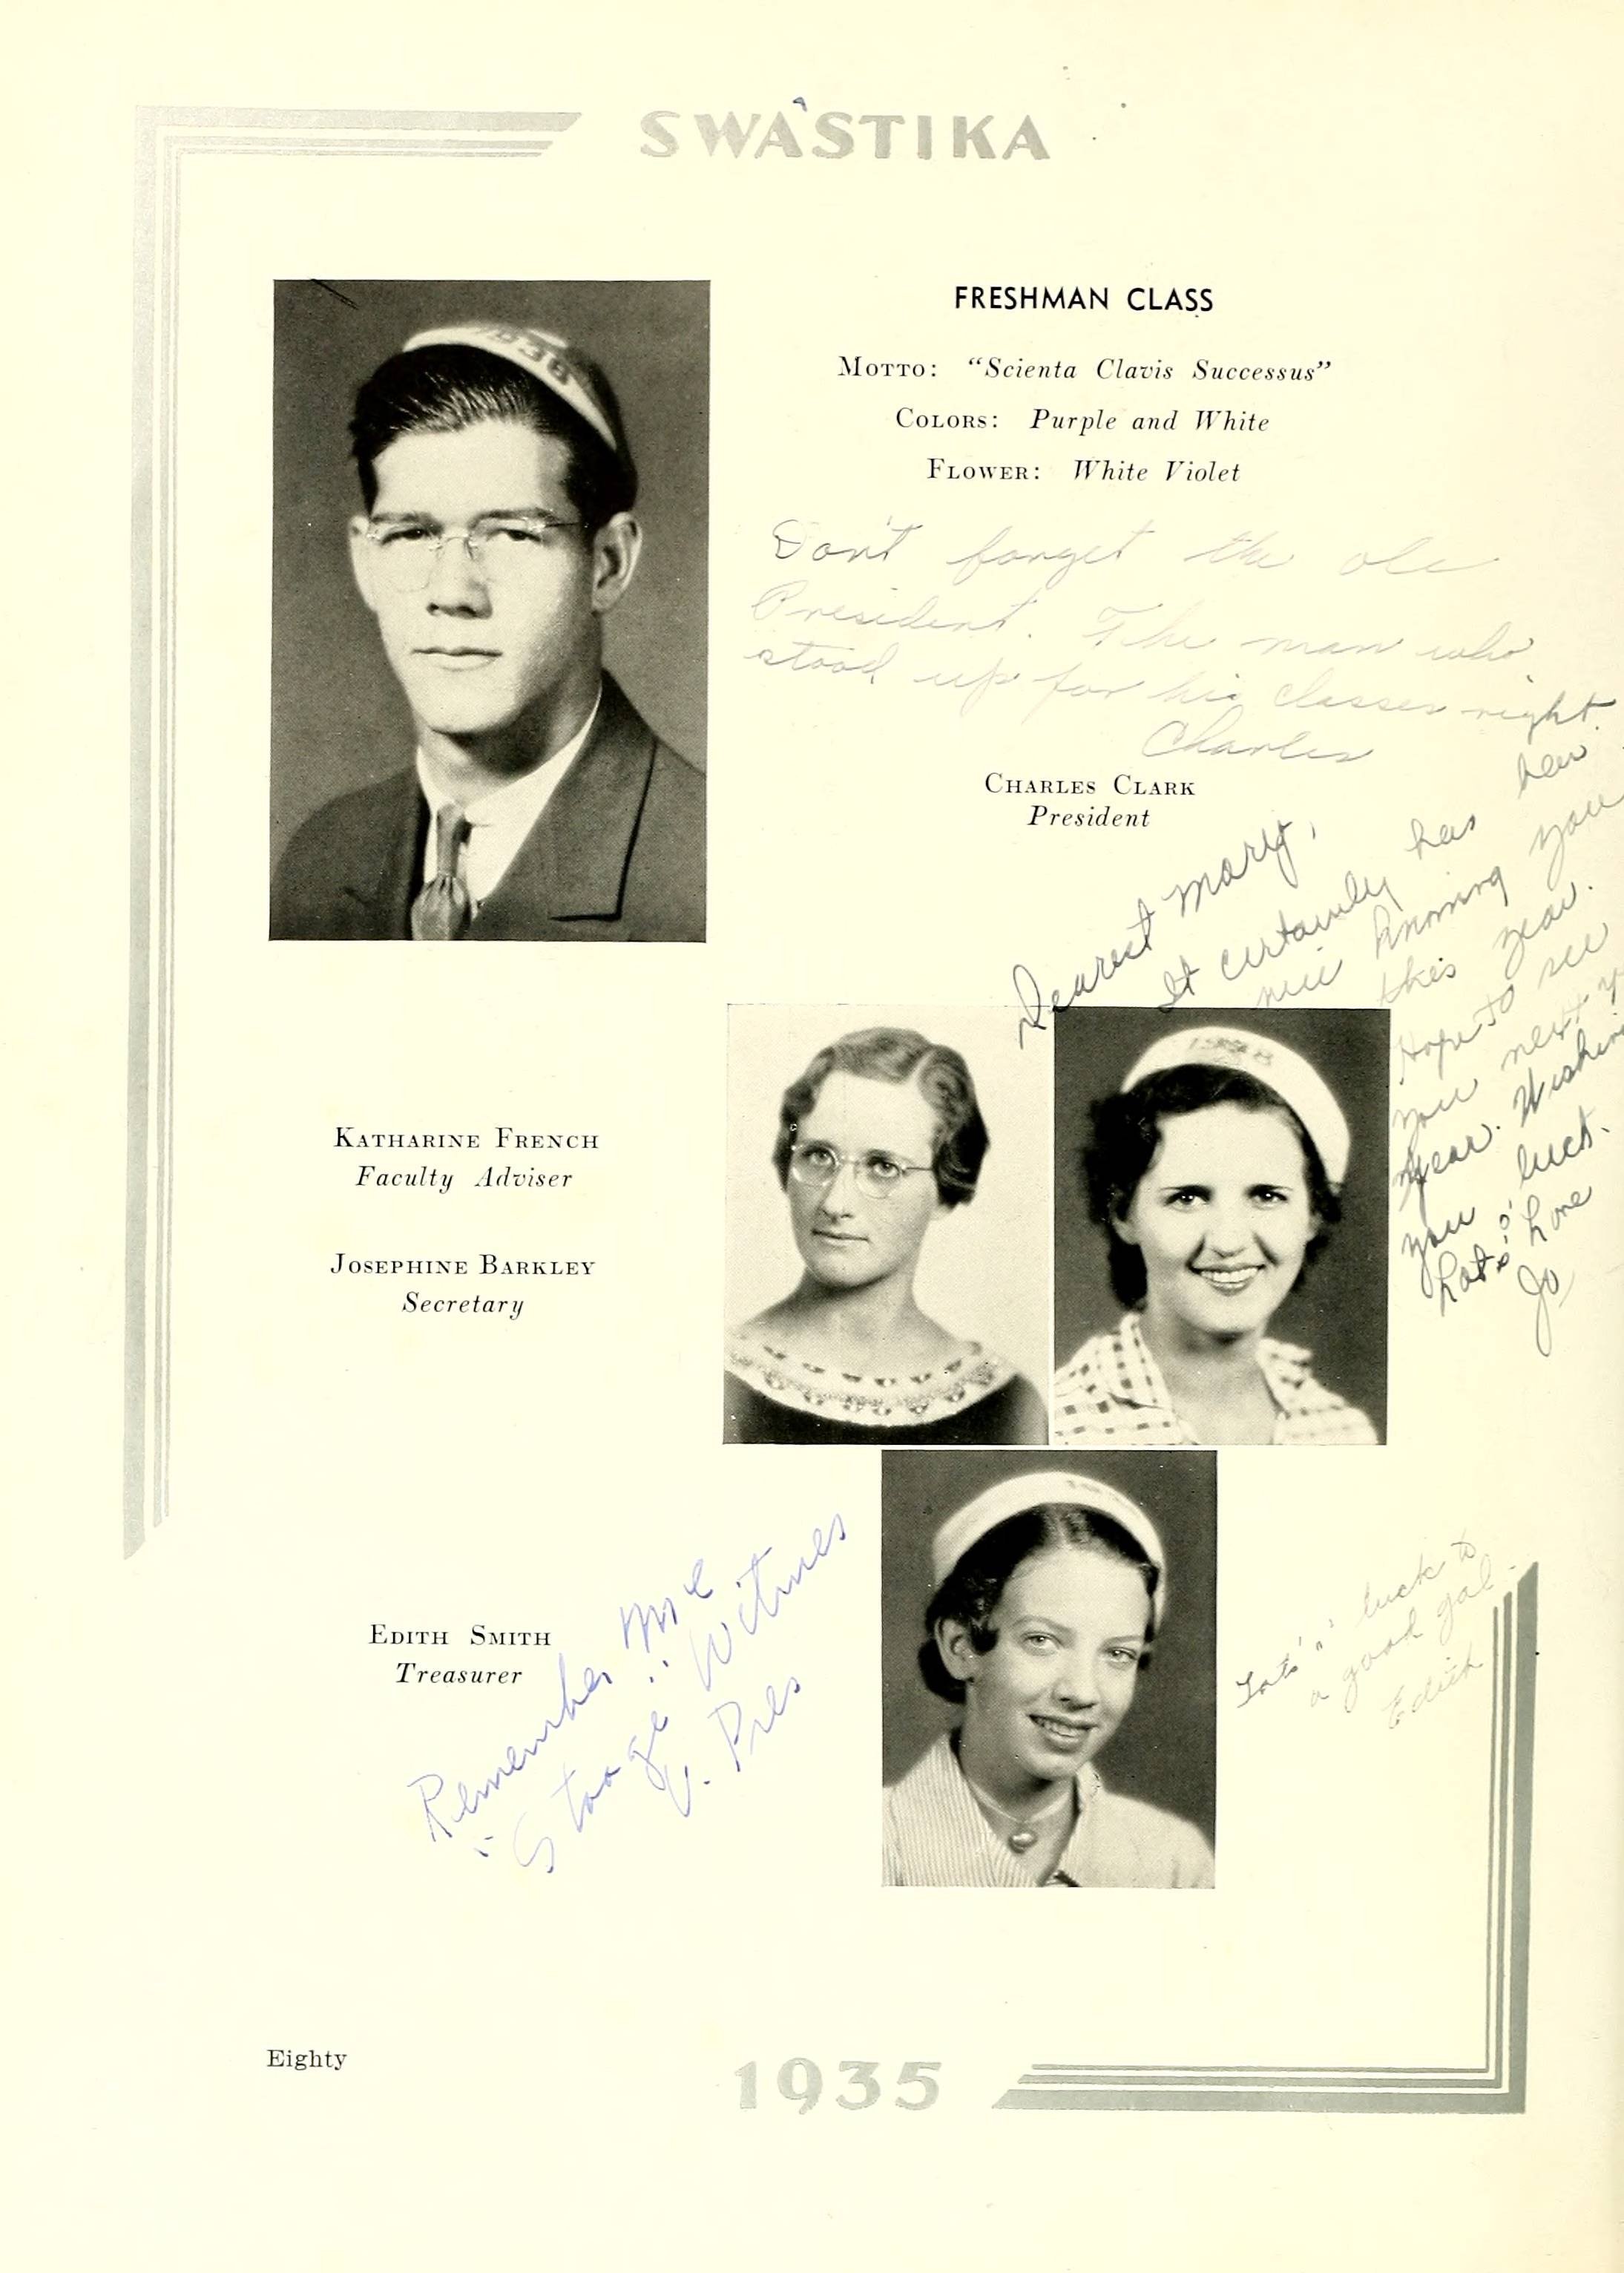 SWASTIKA
FRESHMAN CLASS
MOTTO: "Scienta Clavis Successus"
COLORS: Purple and White
FLOWER: White Violet
Don't forget the ole
President. The man who
stood up for his classes right.
Charles
CHARLES CLARK
President
Dearest Mary,
It certainly has been
nice knowing you
this year.
Hope to see
you next
year. Wishing
you luck.
Lots o' Love
Jo
1938
1938
KATHARINE FRENCH
Faculty Adviser
JOSEPHINE BARKLEY
Secretary
EDITH SMITH
Treasurer
Remember Mr &
"Stooge" Witnes
V. Pres
Lots 'o' luck to
a good gal.
Edith
Eighty
1935